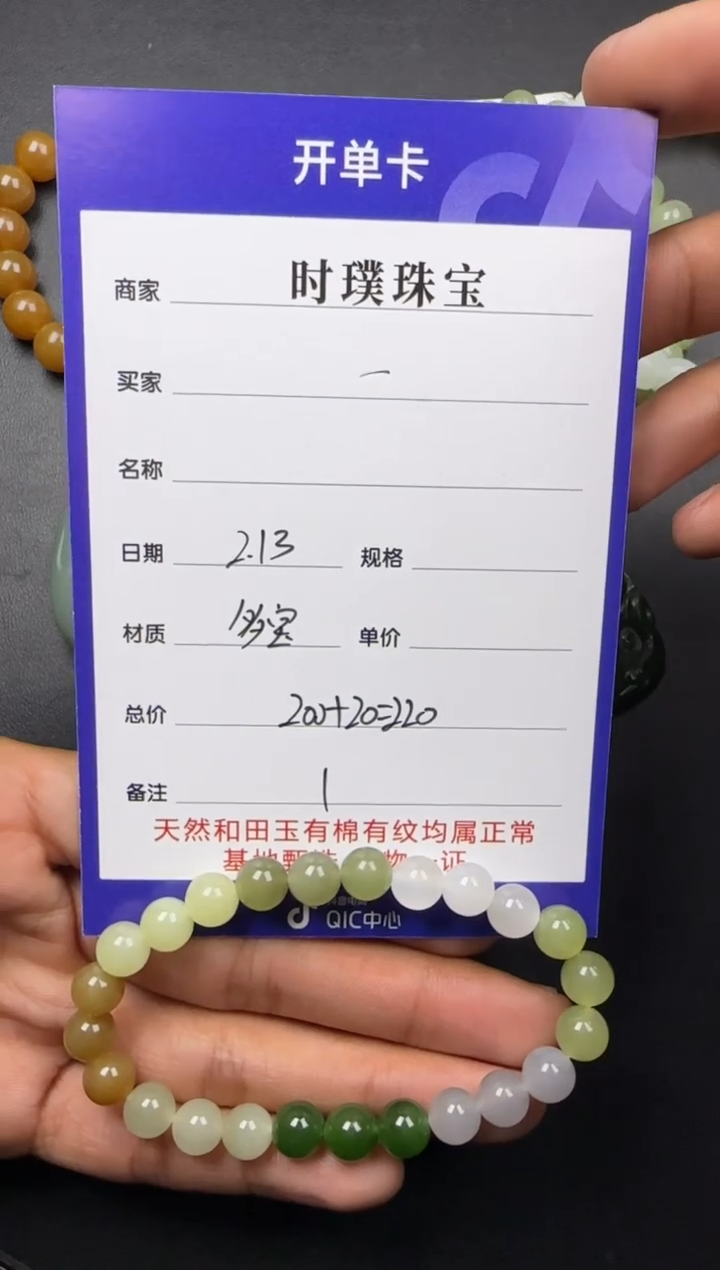 开单卡
商家 时璞珠宝
买家 一
名称
日期 2.13 规格
材质 多宝 单价
总价 200+20=220
备注 1
天然和田玉有棉有纹均属正常
基地甄选 物一证
抖音电商
QIC中心